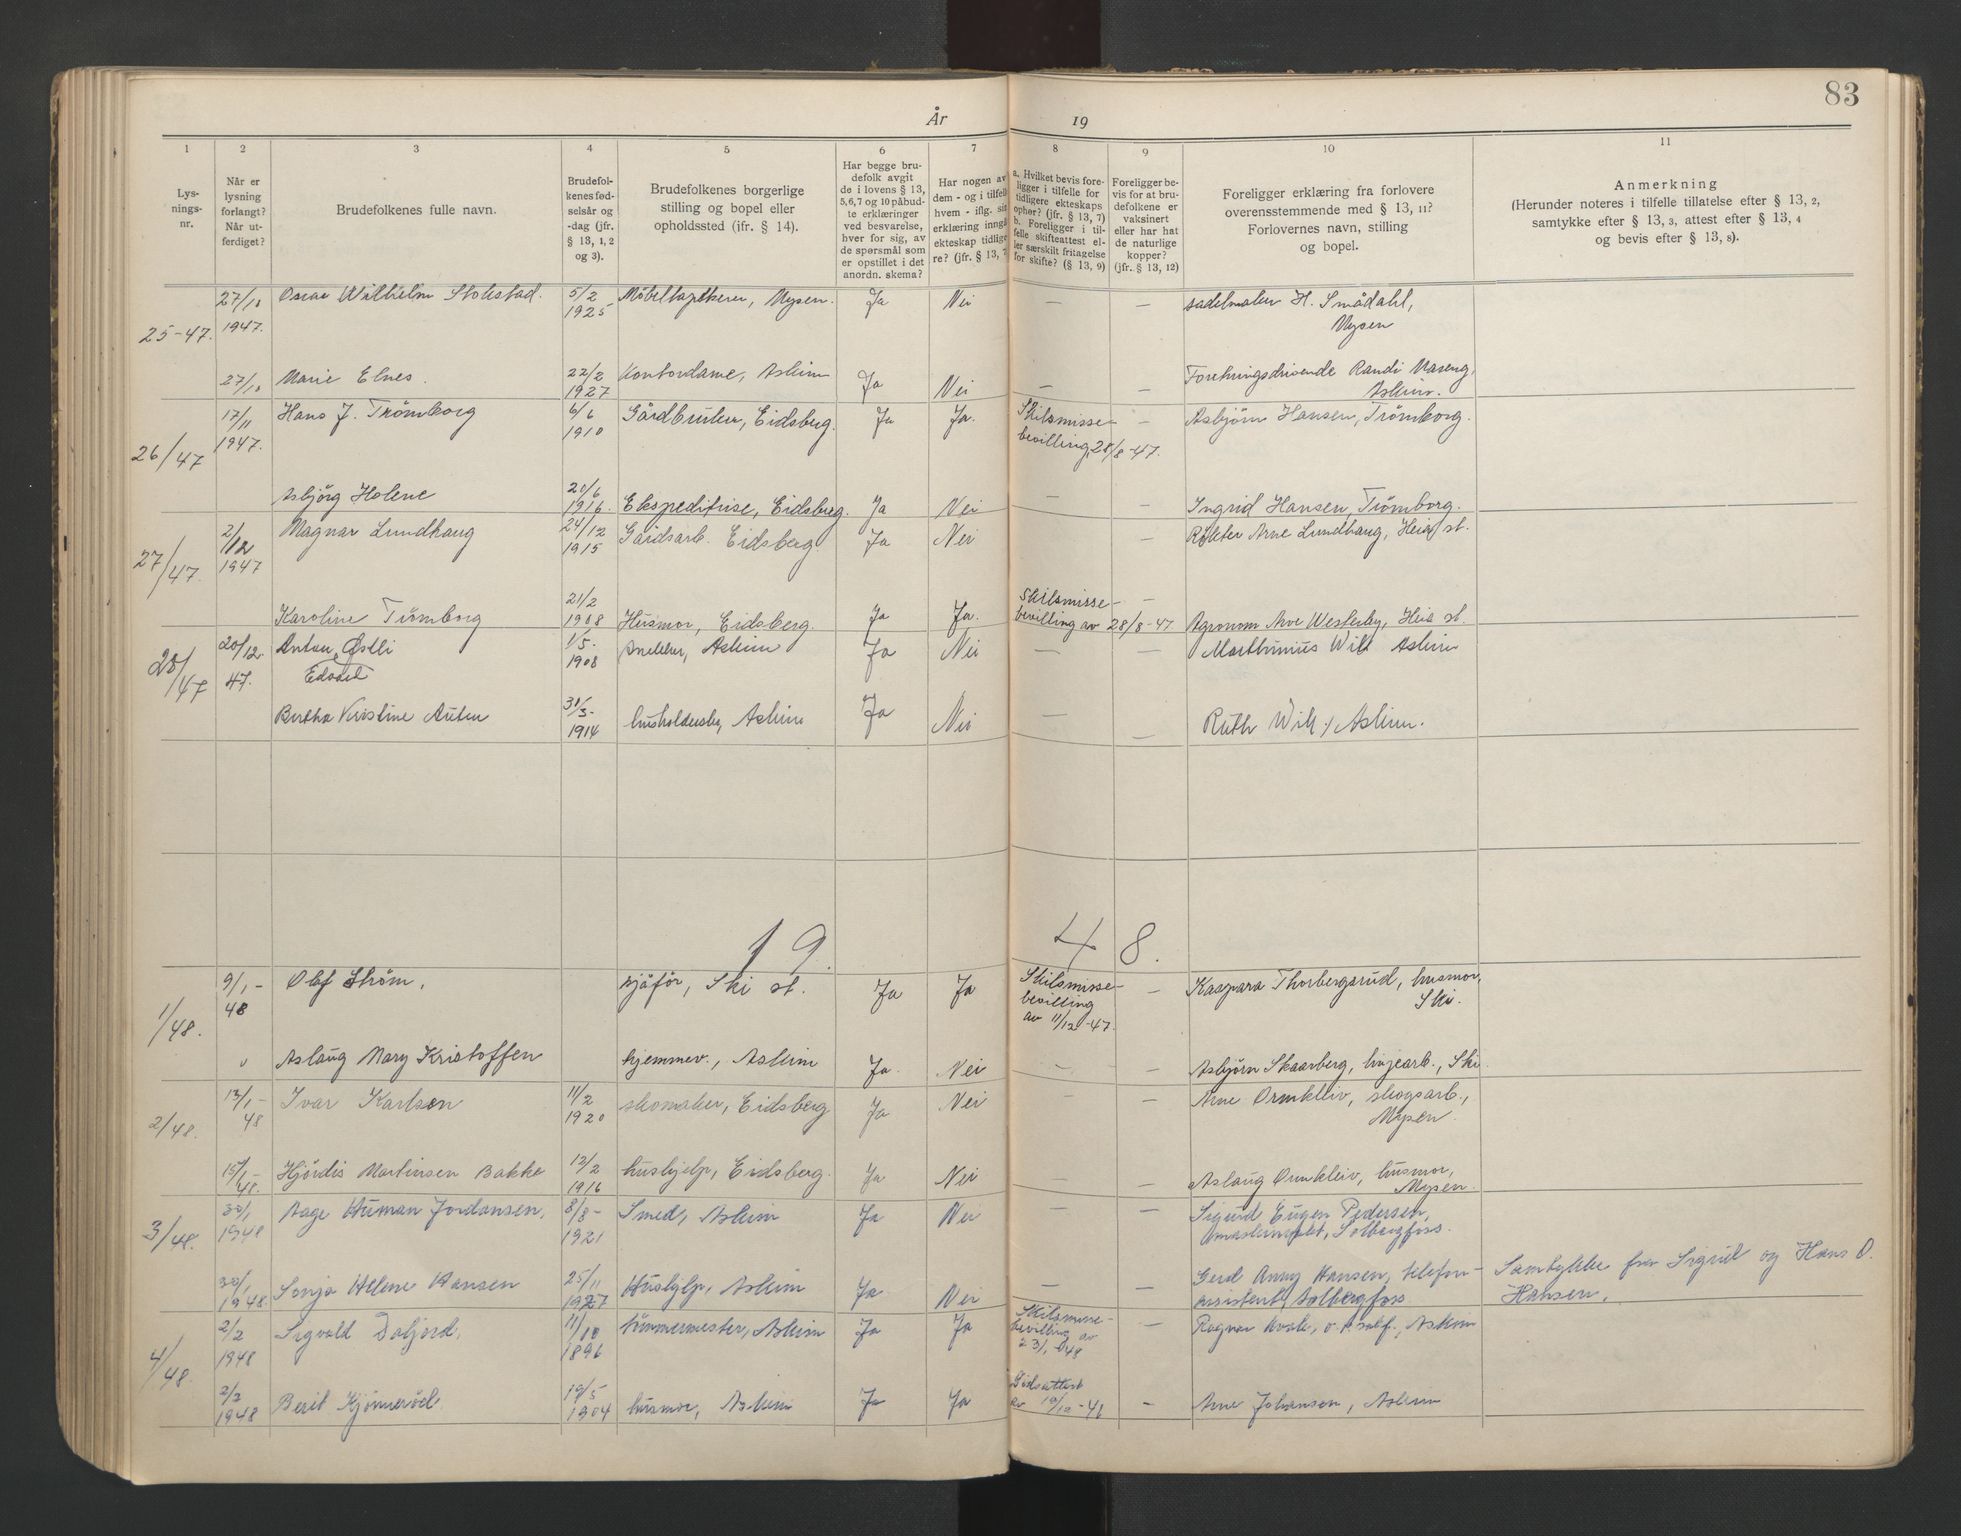 83
År 19
1 2 3 4 5 6 7 8 9 10 11
Lys-
nings-
nr.
Når er
lysning
forlangt?
Når ut-
ferdiget?
Brudefolkenes fulle navn.
Brudefol-
kenes fød-
selsår og
-dag (jfr.
§ 13, 1, 2
og 3).
Brudefolkenes borgerlige
stilling og bopel eller
opholdssted (ifr. § 14).
Har begge bru-
defolk avgit
de i lovens § 13,
5, 6, 7 og 10 påbud-
te erklæringer
ved besvarelse,
hver for sig, av
de spørsmål som
er opstillet i det
anordn. skema?
Har nogen av
dem - og i tilfelle
hvem - iflg. sin
erklæring inngå
ekteskap tidlige
re? (jfr. § 13, 7
a. Hvilket bevis fore-
ligger i tilfelle for
tidligere ekteskaps
ophør? (jfr. § 13, 7)
b. Foreligger i til-
felle skifteattest el-
ler særskilt fritagelse
for skifte? (§ 13, 9)
Foreligger be-
vis for at bru-
defolkene er
vaksinert
eller har hat
de naturlige
kopper?
(jfr. § 13, 12)
Foreligger erklæring fra forlovere
overensstemmende med § 13, 11?
Forlovernes navn, stilling
og bopel.
Anmerkning
(Herunder noteres i tilfelle tillatelse efter § 13, 2,
samtykke efter § 13, 3, attest efter § 13, 4
og bevis efter § 13, 8).
25-47. 27/10 1947. Oscar Wilhelm Stokstad. 5/2 1925 Møbeltapetserer, Mysen. Ja Nei — — sadelmaker H. Smådahl,
Mysen
27/10 Marie Elnes. 22/2 1927 Kontordame, Askim Ja Nei — — Forretningsdrivende Randi Maseng,
Askim.
26/47 17/11 1947. Hans J. Trømborg 6/6 1910 Gårdbruker, Eidsberg. Ja Ja. Skilsmisse-
bevilling, 28/8-47. — Asbjørn Hansen, Trømborg.
Asbjørg Holene 20/6 1916. Ekspeditrise, Eidsberg. Ja Nei — — Ingrid Hansen, Trømborg.
27/47. 2/12 1947 Magnar Lundhaug 24/12 1915 Gårdsarb. Eidsberg Ja Nei — Arne Lundhaug, Heia st.
Karoline Trømborg 21/2 1908 Husmor, Eidsberg. Ja Ja. Skilsmisse- —
bevilling av 28/8-47. Agronom Arve Westerby, Heia st.
28/47 20/12. 47. Anton Østli 1/5. 1908 Snekker, Askim Ja Nei — — Marthinius Wik Askim
Bertha Kristine Auten 31/3- 1914 husholderske, Askim Ja Nei — — Ruth Wik, Askim.
19 48.
1/48. 9/1-48 Olaf Strøm, sjåfør, Ski st. Ja Ja Skilsmisse-
bevilling
av 11/12-47. — Kaspara Thorbergsrud, husmor,
Ski.
" Aslaug Mary Kristoffen hjemmev., Askim Ja. Nei — — Asbjørn Skaarberg, linjearb., Ski.
2/48. 13/1-48 Ivar Karlsen 11/2 1920 skomaker, Eidsberg Ja Nei — — Arne Ormkleiv, skogsarb.,
Mysen.
15/1-48. Hjørdis Martinsen Bakke 12/2 1916 hushjelp, Eidsberg. Ja Nei — — Aslaug Ormkleiv, husmor,
Mysen.
3/48. 30/1 1948 Aage Human Jordansen, 8/8- 1921 Smed, Askim Ja Nei — — Sigurd Eugen Pedersen,
Solbergfoss.
30/1 1948. Sonja Helene Hansen 25/11 1927 Hushjelp, Askim Ja Nei — — Gerd Anny Hansen, telefon-
assistent, Solbergfoss. Samtykke fra Sigrid og Hans O.
Hansen.
4/48. 2/2 1948 Sigvald Daljord. 11/10 1896 tømmermester, Askim Ja Ja Skilsmisse-
bevilling av
23/1-48 — Ragnar Askim
2/2 1948 Berit Kjønnerød. 19/5 1904 husmor, Askim Ja Ja av 19/12-41 — Arne Johansen, Askim